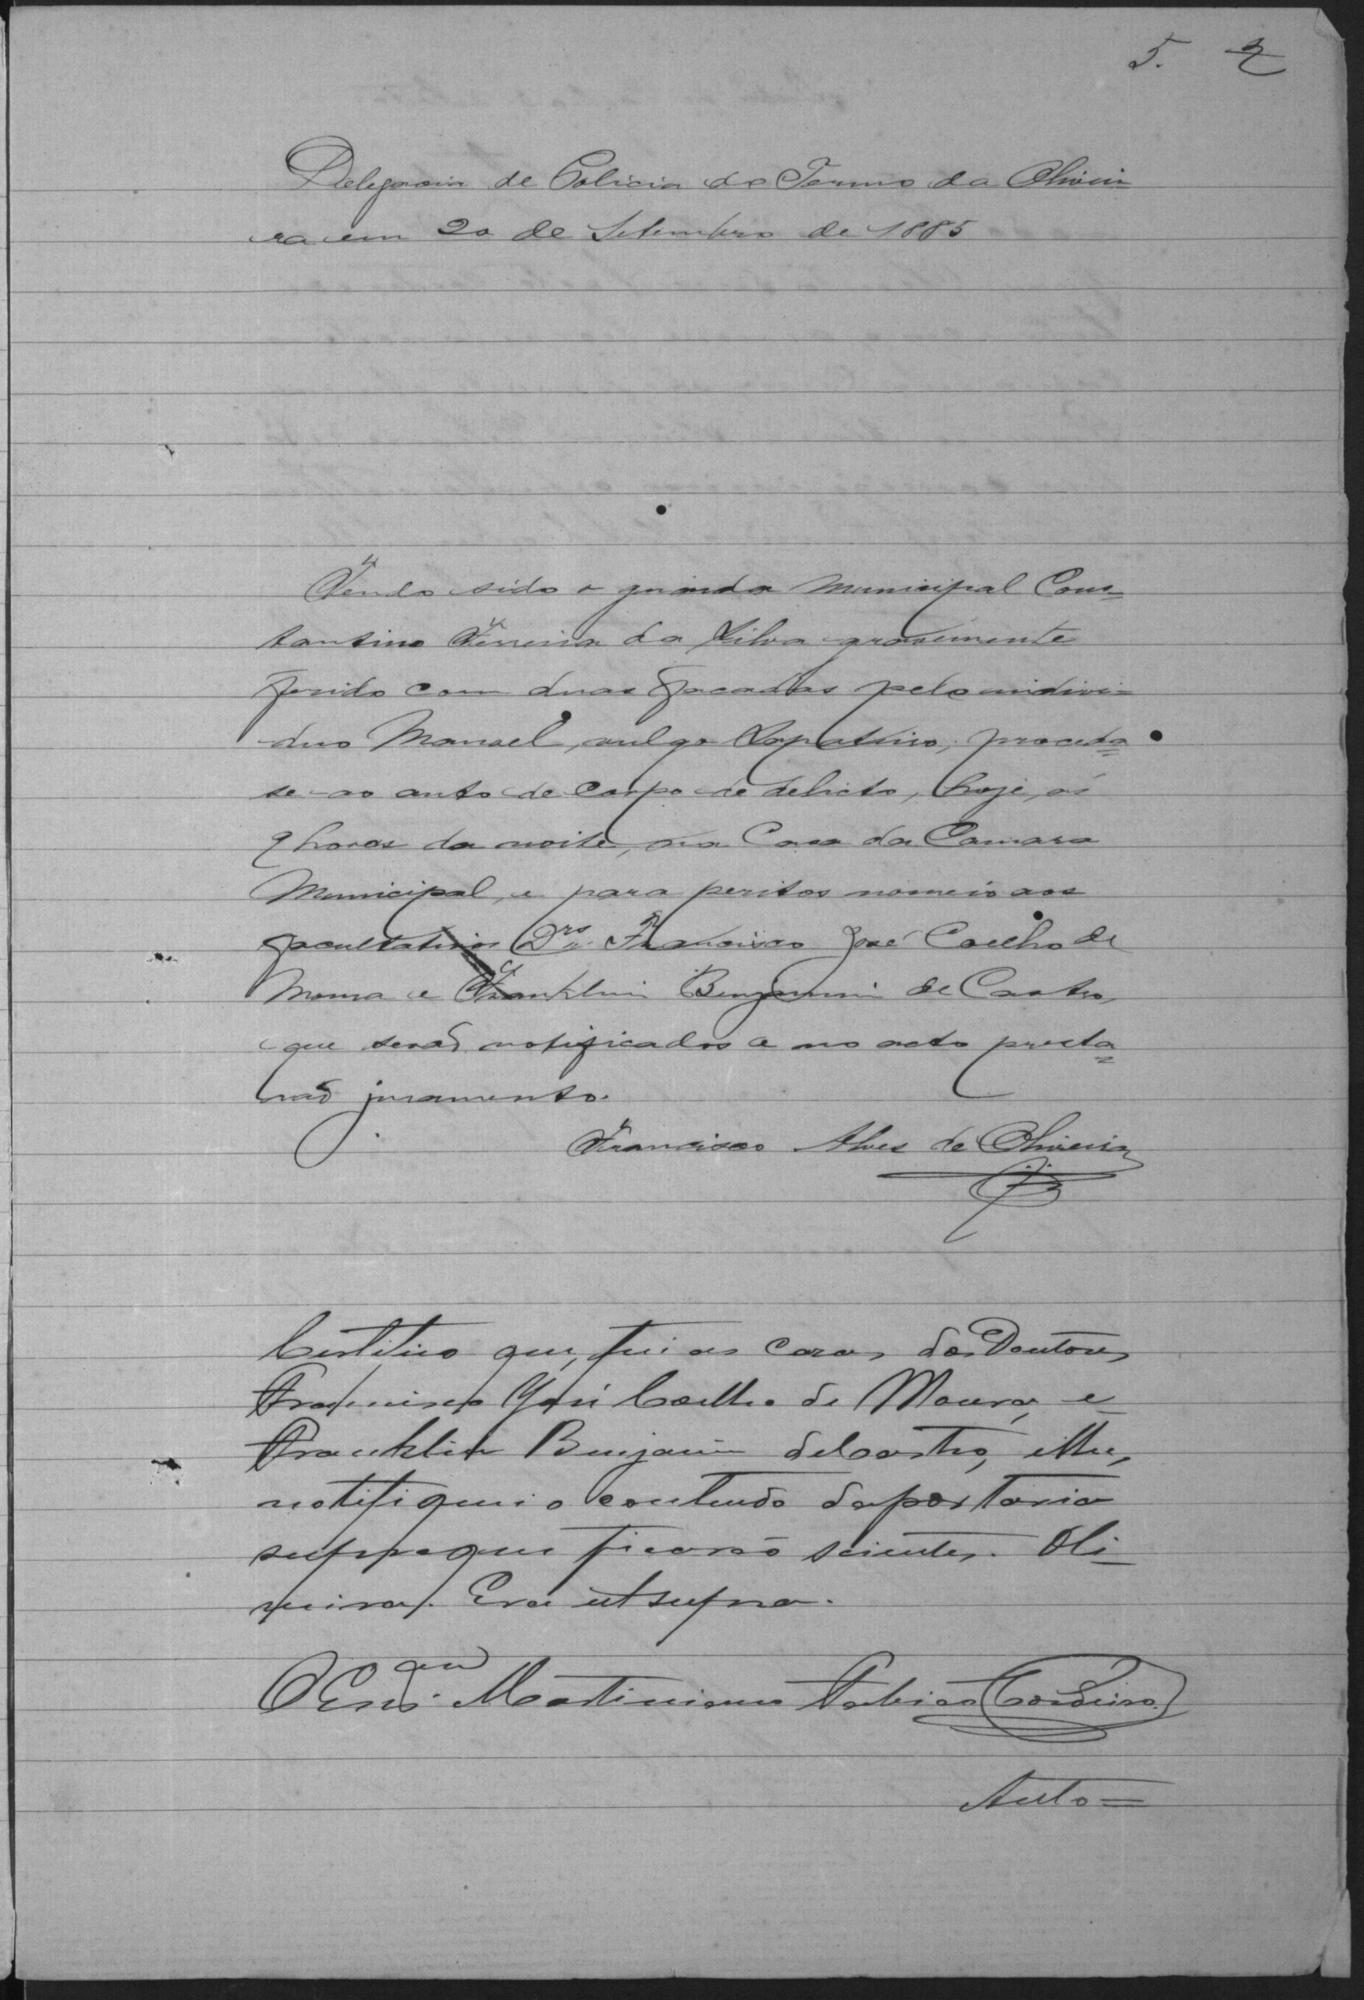 5. 2
Delegacia de Policia do Termo da Olivei
ra em 20 de Setembro de 1885
Tendo sido o guarda Municipal Cons=
tantino Ferreira da Silva gravemente
ferido com duas facadas pelo indivi=
duo Manoel, vulgo Sapateiro, proceda=
se ao auto de corpo de delicto, hoje, ás
9 horas da noite, na Casa da Camara
Municipal, e para peritos nomeio aos
facultativos Drs. Francisco José Coelho de
Moura e Franklin Benjamin de Castro,
que serão notificados e no acto presta=
rão juramento.
Francisco Alves de Oliveira
Certifico que, fui as casas dos Doutores
Francisco José Coelho de Moura, e
Franklin Benjamin de Castro, e lhes
notifiquei o conteudo da portaria
supra que ficarão scientes. Oli=
veira. Era ut supra.
O Escrivam Martiniano Cordeiro
Auto=